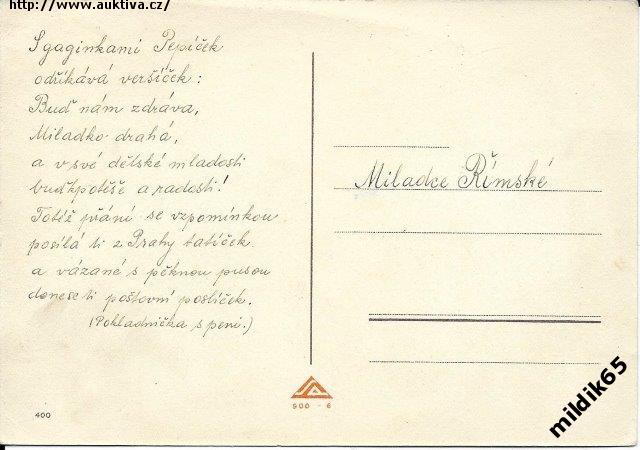 http://www.auktiva.cz/
S gaginkami Pepíček
odříkává veršíček:
Buď nám zdráva,
Miladko drahá,
a v své dětské mladosti
buď k potěše a radosti!
Totéž přání se vzpomínkou
posílá ti z Prahy tatíček
a vázané s pěknou pusou
donese ti poštovní poslíček.
(Pokladnička s peni.)
Miladce Římské
500 - 6
400
mildik65